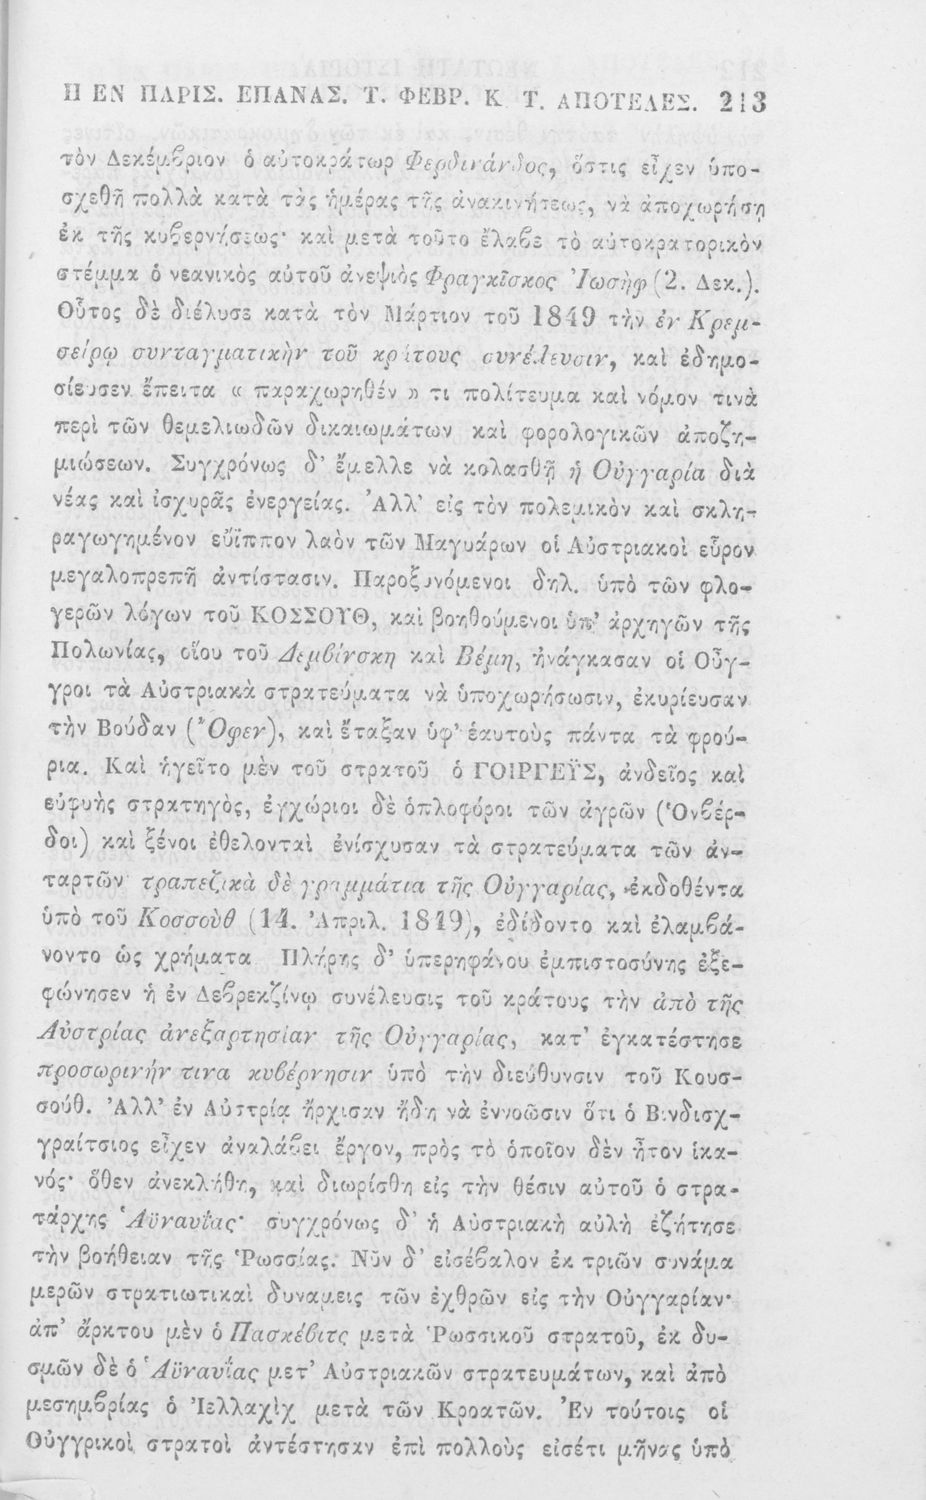 Η ΕΝ ΠΑΡΙΣ. ΕΠΑΝΑΣ. Τ. ΦΕΒΡ. Κ. Τ. ΑΠΟΤΕΛΕΣ. 213
τὸν Δεκέμβριον ὁ αὐτοκράτωρ Φερδινάνδος, ὅστις εἶχεν ὑπο-
σχεθῆ πολλὰ κατὰ τὰς ἡμέρας τῆς ἀνακινήσεως, νὰ ἀποχωρήσῃ
ἐκ τῆς κυβερνήσεως· καὶ μετὰ τοῦτο ἔλαβε τὸ αὐτοκρατορικὸν
στέμμα ὁ νεανικὸς αὐτοῦ ἀνεψιὸς Φραγκῖσκος Ἰωσὴφ (2. Δεκ.).
Οὗτος δὲ διέλυσε κατὰ τὸν Μάρτιον τοῦ 1849 τὴν ἐν Κρεμ-
σείρῳ συνταγματικὴν τοῦ κράτους συνέλευσιν, καὶ ἐδημο-
σίευσεν ἔπειτα « παραχωρηθέν » τι πολίτευμα καὶ νόμον τινὰ
περὶ τῶν θεμελιωδῶν δικαιωμάτων καὶ φορολογικῶν ἀποζη-
μιώσεων. Συγχρόνως δ' ἔμελλε νὰ κολασθῇ ἡ Οὐγγαρία διὰ
νέας καὶ ἰσχυρᾶς ἐνεργείας. Ἀλλ' εἰς τὸν πολεμικὸν καὶ σκλη-
ραγωγημένον εὔϊππον λαὸν τῶν Μαγυάρων οἱ Αὐστριακοὶ εὗρον
μεγαλοπρεπῆ ἀντίστασιν. Παροξυνόμενοι δηλ. ὑπὸ τῶν φλο-
γερῶν λόγων τοῦ ΚΟΣΣΟΥΘ, καὶ βοηθούμενοι ὑπ' ἀρχηγῶν τῆς
Πολωνίας, οἵου τοῦ Δεμβίνσκη καὶ Βέμη, ἠνάγκασαν οἱ Οὖγ-
γροι τὰ Αὐστριακὰ στρατεύματα νὰ ὑποχωρήσωσιν, ἐκυρίευσαν
τὴν Βούδαν (Ὄφεν), καὶ ἔταξαν ὑφ' ἑαυτοὺς πάντα τὰ φρού-
ρια. Καὶ ἡγεῖτο μὲν τοῦ στρατοῦ ὁ ΓΟΙΡΓΕΫΣ, ἀνδεῖος καὶ
εὐφυὴς στρατηγὸς, ἐγχώριοι δὲ ὁπλοφόροι τῶν ἀγρῶν (Ὁνβέρ-
δοι) καὶ ξένοι ἐθελονταὶ ἐνίσχυσαν τὰ στρατεύματα τῶν ἀν-
ταρτῶν· τραπεζικὰ δὲ γραμμάτια τῆς Οὐγγαρίας, ἐκδοθέντα
ὑπὸ τοῦ Κοσσοὺθ (14. Ἀπριλ. 1849), ἐδίδοντο καὶ ἐλαμβά-
νοντο ὡς χρήματα Πλήρης δ' ὑπερηφάνου ἐμπιστοσύνης ἐξε-
φώνησεν ἡ ἐν Δεβρεκζίνῳ συνέλευσις τοῦ κράτους τὴν ἀπὸ τῆς
Αὐστρίας ἀνεξαρτησίαν τῆς Οὐγγαρίας, κατ' ἐγκατέστησε
προσωρινήν τινα κυβέρνησιν ὑπὸ τὴν διεύθυνσιν τοῦ Κουσ-
σούθ. Ἀλλ' ἐν Αὐστρίᾳ ἤρχισαν ἤδη νὰ ἐννοῶσιν ὅτι ὁ Βινδισχ-
γραίτσιος εἶχεν ἀναλάβει ἔργον, πρὸς τὸ ὁποῖον δὲν ἦτον ἱκα-
νός· ὅθεν ἀνεκλήθη, καὶ διωρίσθη εἰς τὴν θέσιν αὐτοῦ ὁ στρα-
τάρχης Ἁϋναυΐας· συγχρόνως δ' ἡ Αὐστριακὴ αὐλὴ ἐζήτησε
τὴν βοήθειαν τῆς Ῥωσσίας. Νῦν δ' εἰσέβαλον ἐκ τριῶν συνάμα
μερῶν στρατιωτικαὶ δυναμεις τῶν ἐχθρῶν εἰς τὴν Οὐγγαρίαν·
ἀπ' ἄρκτου μὲν ὁ Πασκέβιτς μετὰ Ῥωσσικοῦ στρατοῦ, ἐκ δυ-
σμῶν δὲ ὁ Ἁϋναυΐας μετ' Αὐστριακῶν στρατευμάτων, καὶ ἀπὸ
μεσημβρίας ὁ Ἰελλαχὶχ μετὰ τῶν Κροατῶν. Ἐν τούτοις οἱ
Οὐγγρικοὶ στρατοὶ ἀντέστησαν ἐπὶ πολλοὺς εἰσέτι μῆνας ὑπὸ